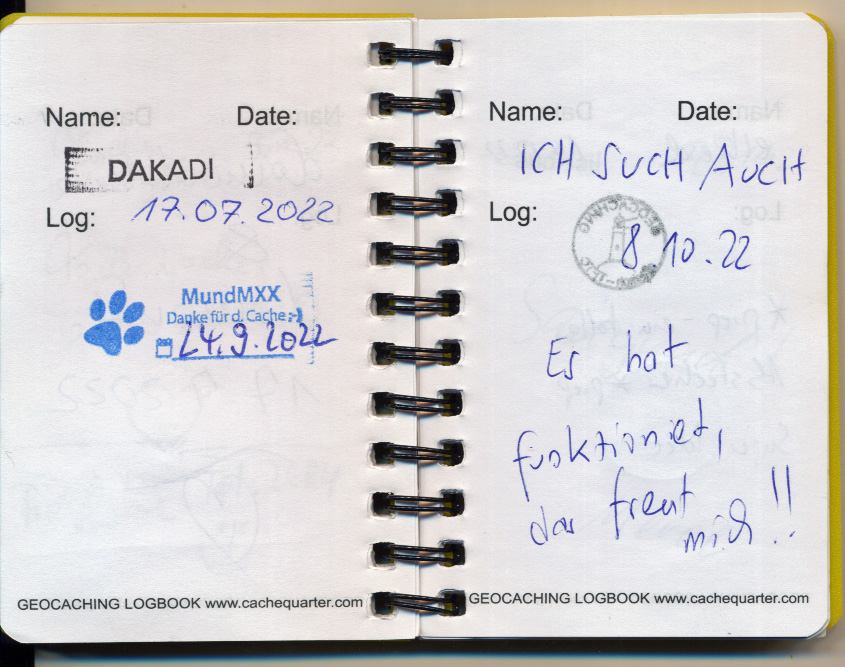 Name: Date:
DAKADI
Log: 17.07.2022
MundMXX
Danke für d. Cache :-)
24.9.2022
GEOCACHING LOGBOOK www.cachequarter.com
Name: Date:
ICH SUCH AUCH
Log:
GEOCACHING
8 10.22
Es hat
funktioniert,
das freut
mich!!
GEOCACHING LOGBOOK www.cachequarter.com